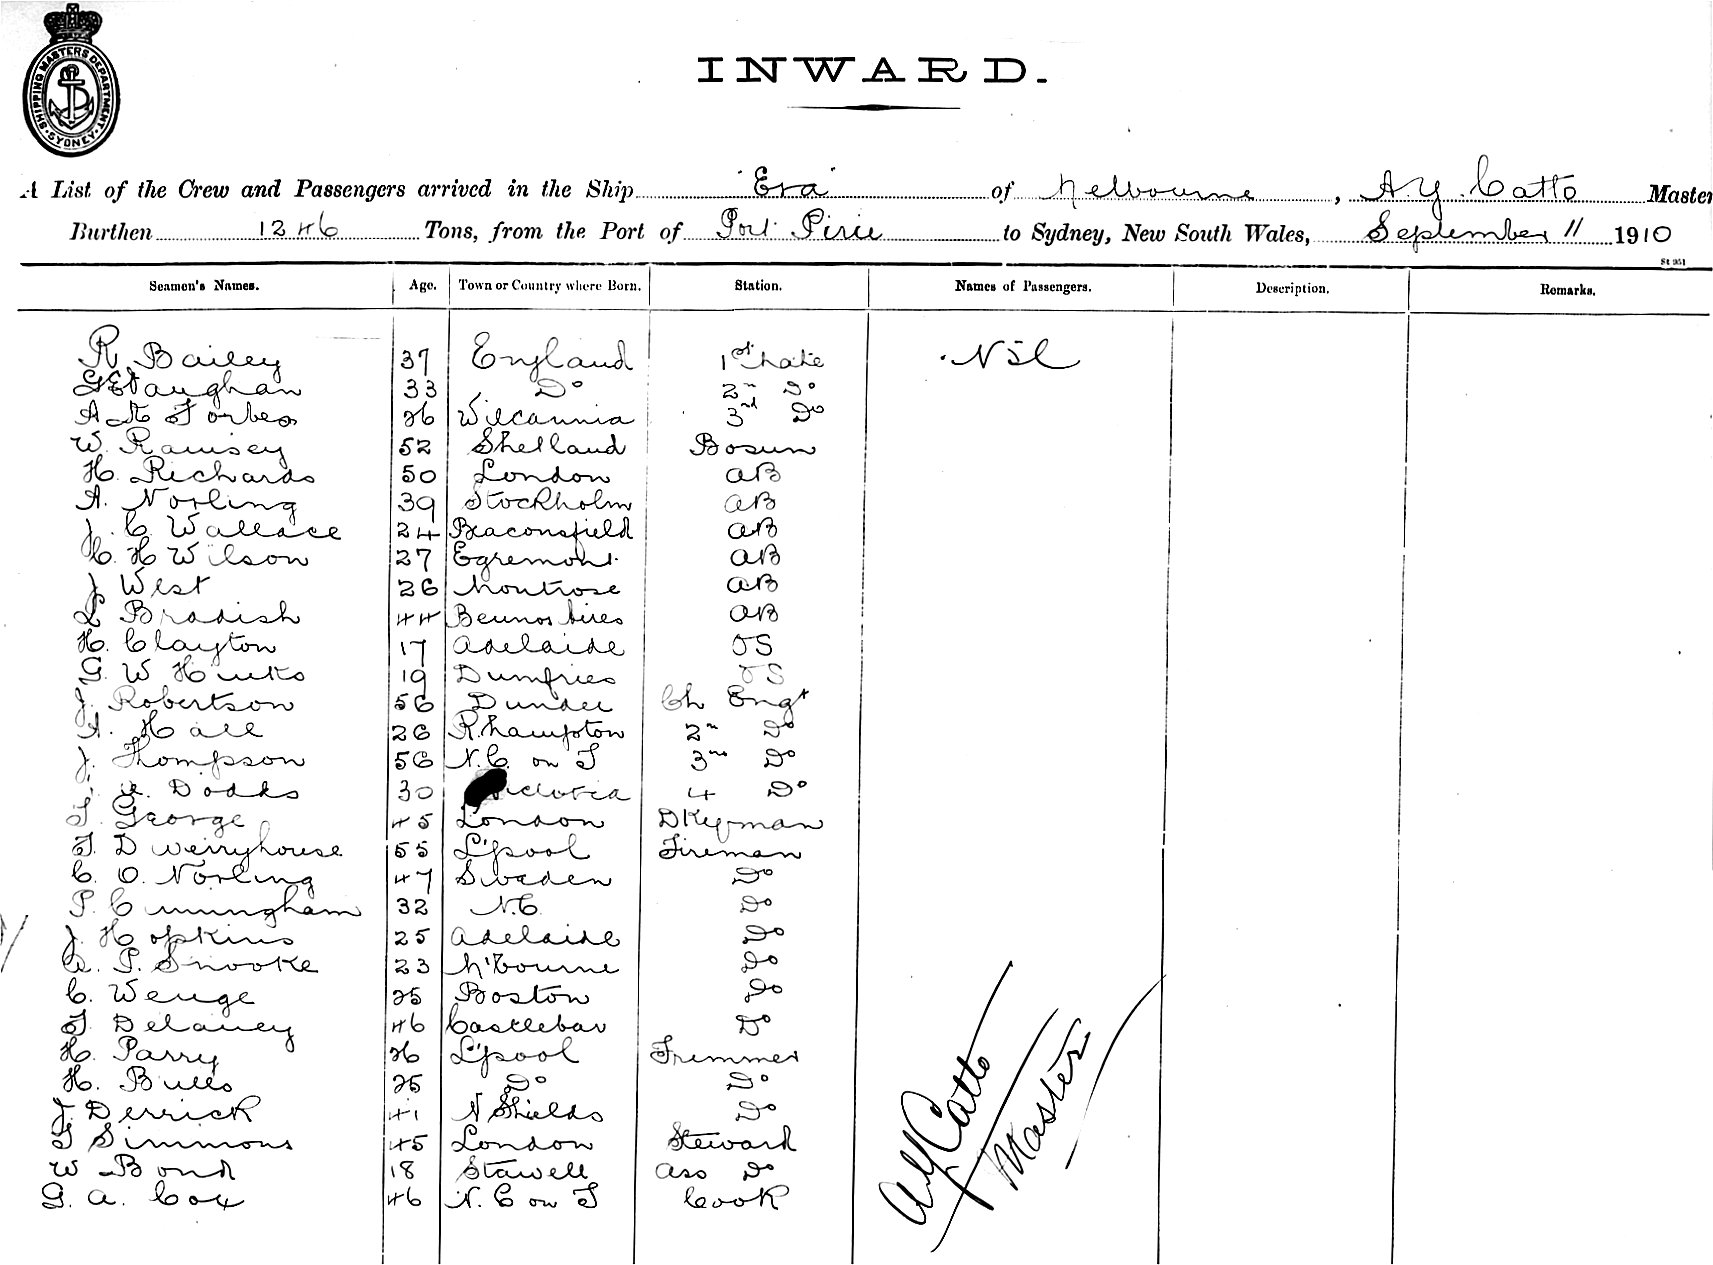 SHIPPING MASTERS DEPARTMENT. SYDNEY
INWARD.
A List of the Crew and Passengers arrived in the Ship "Era" of Melbourne, A.Y. Catto Master
Burthen 1246 Tons, from the Port of Port Pirie to Sydney, New South Wales, September 11 1910
St 951
Seamen's Names. Age. Town or Country where Born. Station. Names of Passengers. Description. Remarks.
R Bailey 37 England 1st Mate Nil
G E Vaughan 33 Do 2n Do
A Forbes 26 Wilcannia 3rd Do
W. Ramsey 52 Shetland Bosun
H. Richards 50 London AB
A. Norling 39 Stockholm AB
J. C Wallace 24 Beaconsfield AB
C. H Wilson 27 Egremont AB
J West 26 Montrose AB
L Bradish 44 Beunos Aires AB
H. Clayton 17 Adelaide OS
G. W 19 Dumfries OS
J. Robertson 56 Dundee Ch Engt
A. Hall 26 R.hampton 2n Do
J. Thompson 56 N.C. on T 3rd Do
A. Dodds 30 4 Do
T. George 45 London DKeyman
T. Dwerryhouse 55 L'pool Fireman
C. O. Norling 47 Sweden Do
P. Cunningham 32 N.C. Do
J. Hopkins 25 Adelaide Do
P. Snooke 23 M'bourne Do
C. Wenge 25 Boston Do
T. Delaney 46 Castlebar Do
H. Parry 26 L'pool Trimmer
H. Bulls 25 Do Do
J. Derrick 41 N Shields Do
T Simmons 45 London Steward
W Bond 18 Stawell Ass Do
G. A. Cox 46 N. C on T Cook
AY Catto
Master